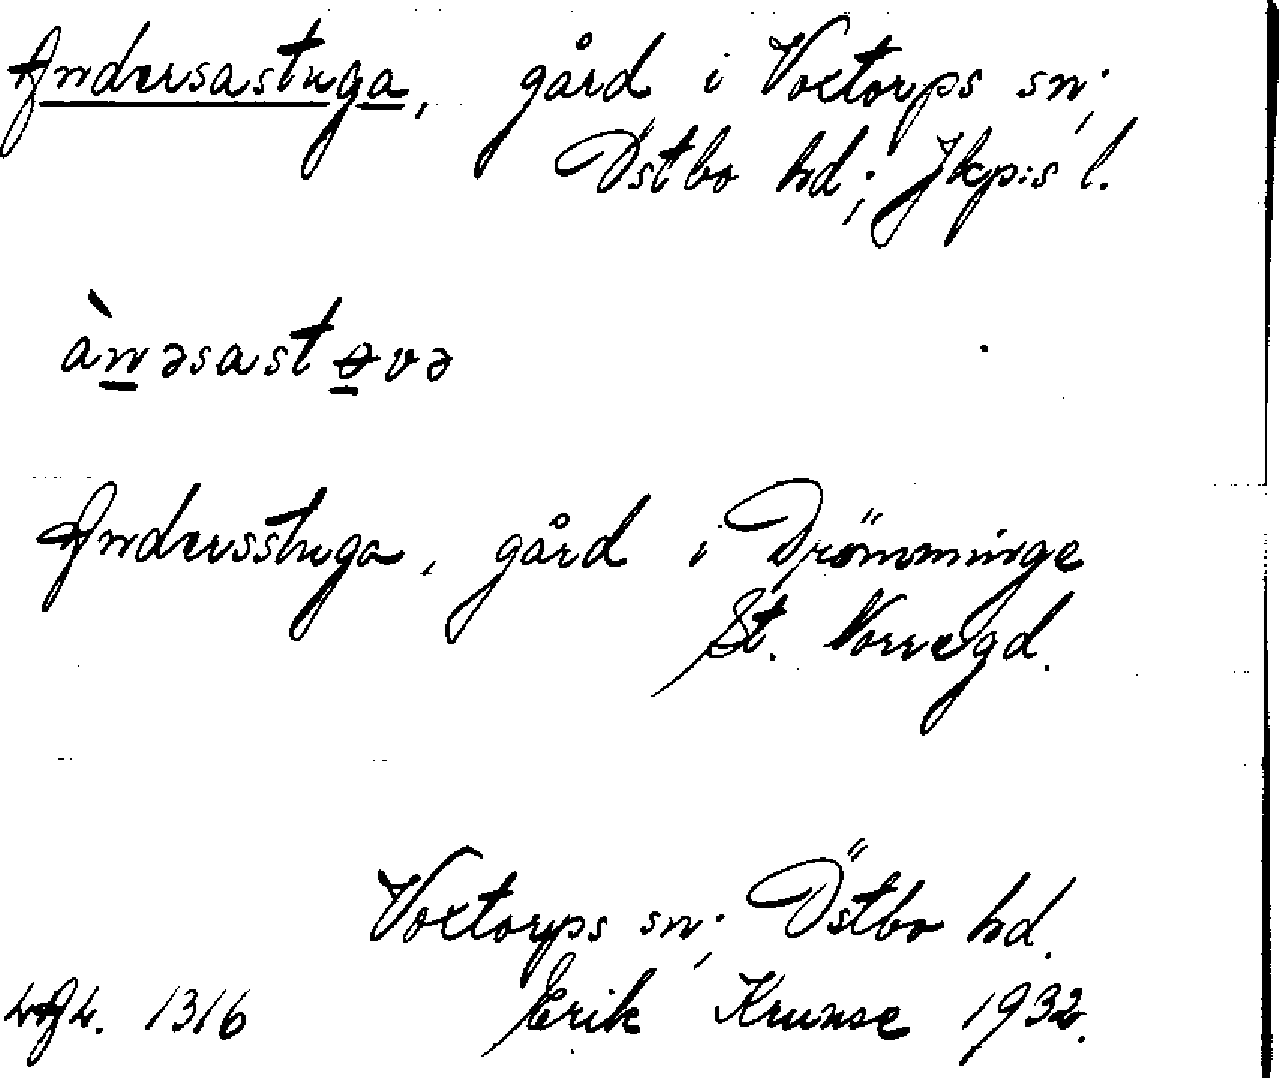 Andersastuga, gård i Voxtorps sn;
Östbo hd; Jkp:s l.
ànəsastɵvə
Andersstuga, gård i Drömminge
St. Norregd.
Voxtorps sn; Östbo hd.
1316 Erik Krunse 1932.